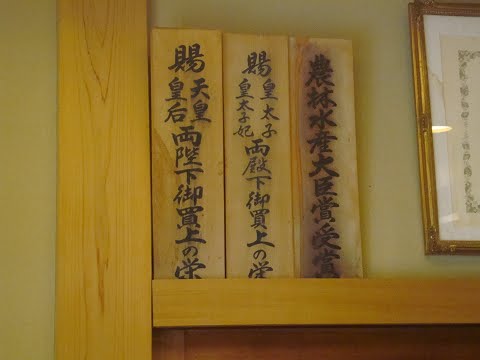 農林水産大臣賞受賞
賜皇太子皇太子妃両殿下御買上の栄
賜天皇皇后両陛下御買上の栄